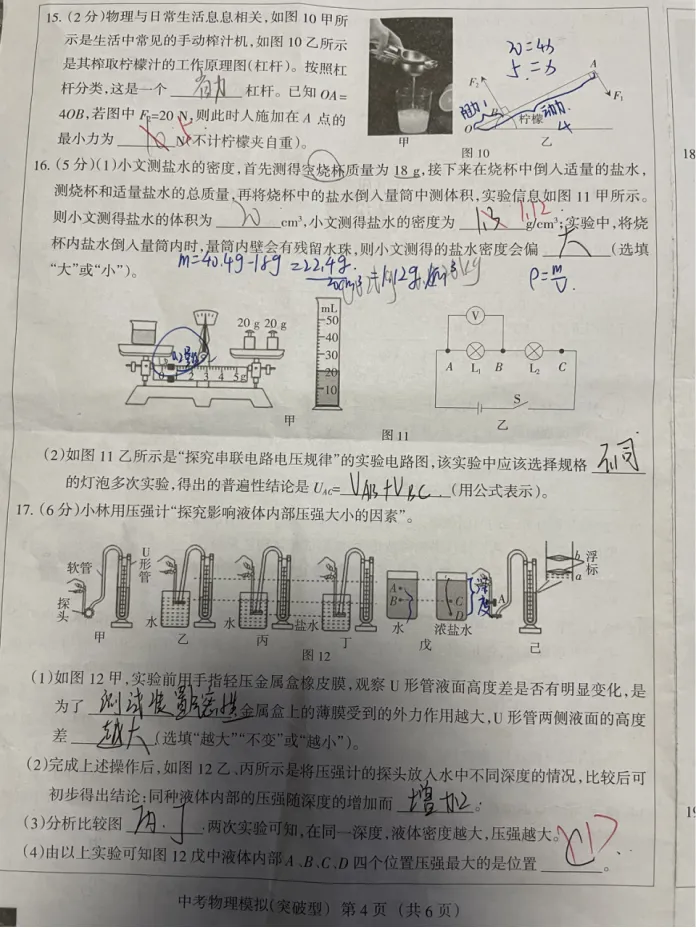 15.(2分)物理与日常生活息息相关,如图10甲所
示是生活中常见的手动榨汁机,如图10乙所示
是其榨取柠檬汁的工作原理图(杠杆)。按照杠
杆分类,这是一个 省力 杠杆。已知OA=
4OB,若图中F₂=20 N,则此时人施加在A点的
最小力为 5 N(不计柠檬夹自重)。
20=4x
5=x
A
F₂
F₁
阻力
动力
B
柠檬
4
O
甲
乙
图10
16.(5分)(1)小文测盐水的密度,首先测得空烧杯质量为18 g,接下来在烧杯中倒入适量的盐水,
测烧杯和适量盐水的总质量,再将烧杯中的盐水倒入量筒中测体积,实验信息如图11甲所示。
则小文测得盐水的体积为 20 cm³,小文测得盐水的密度为 1.12 g/cm³;实验中,将烧
杯内盐水倒入量筒内时,量筒内壁会有残留水珠,则小文测得的盐水密度会偏 大 (选填
“大”或“小”)。
m=40.4g-18g=22.4g
ρ=m/V
20 g 20 g
0 1 2 3 4 5g
mL
50
40
30
20
10
甲
V
A L₁ B L₂ C
S
乙
图11
(2)如图11乙所示是“探究串联电路电压规律”的实验电路图,该实验中应该选择规格 不同
的灯泡多次实验,得出的普遍性结论是U_AC= U_AB+U_BC (用公式表示)。
17.(6分)小林用压强计“探究影响液体内部压强大小的因素”。
软管
U形管
探头
甲
水
乙
水
丙
盐水
丁
A
B
水
C
D
浓盐水
戊
深度
A
b
a
浮标
己
图12
(1)如图12甲,实验前用手指轻压金属盒橡皮膜,观察U形管液面高度差是否有明显变化,是
为了 测试装置密 金属盒上的薄膜受到的外力作用越大,U形管两侧液面的高度
差 越大 (选填“越大”“不变”或“越小”)。
(2)完成上述操作后,如图12乙、丙所示是将压强计的探头放入水中不同深度的情况,比较后可
初步得出结论:同种液体内部的压强随深度的增加而 增加 。
(3)分析比较图 丙.丁 两次实验可知,在同一深度,液体密度越大,压强越大。
(4)由以上实验可知图12戊中液体内部A、B、C、D四个位置压强最大的是位置 。
中考物理模拟(突破型) 第4页(共6页)
18
19